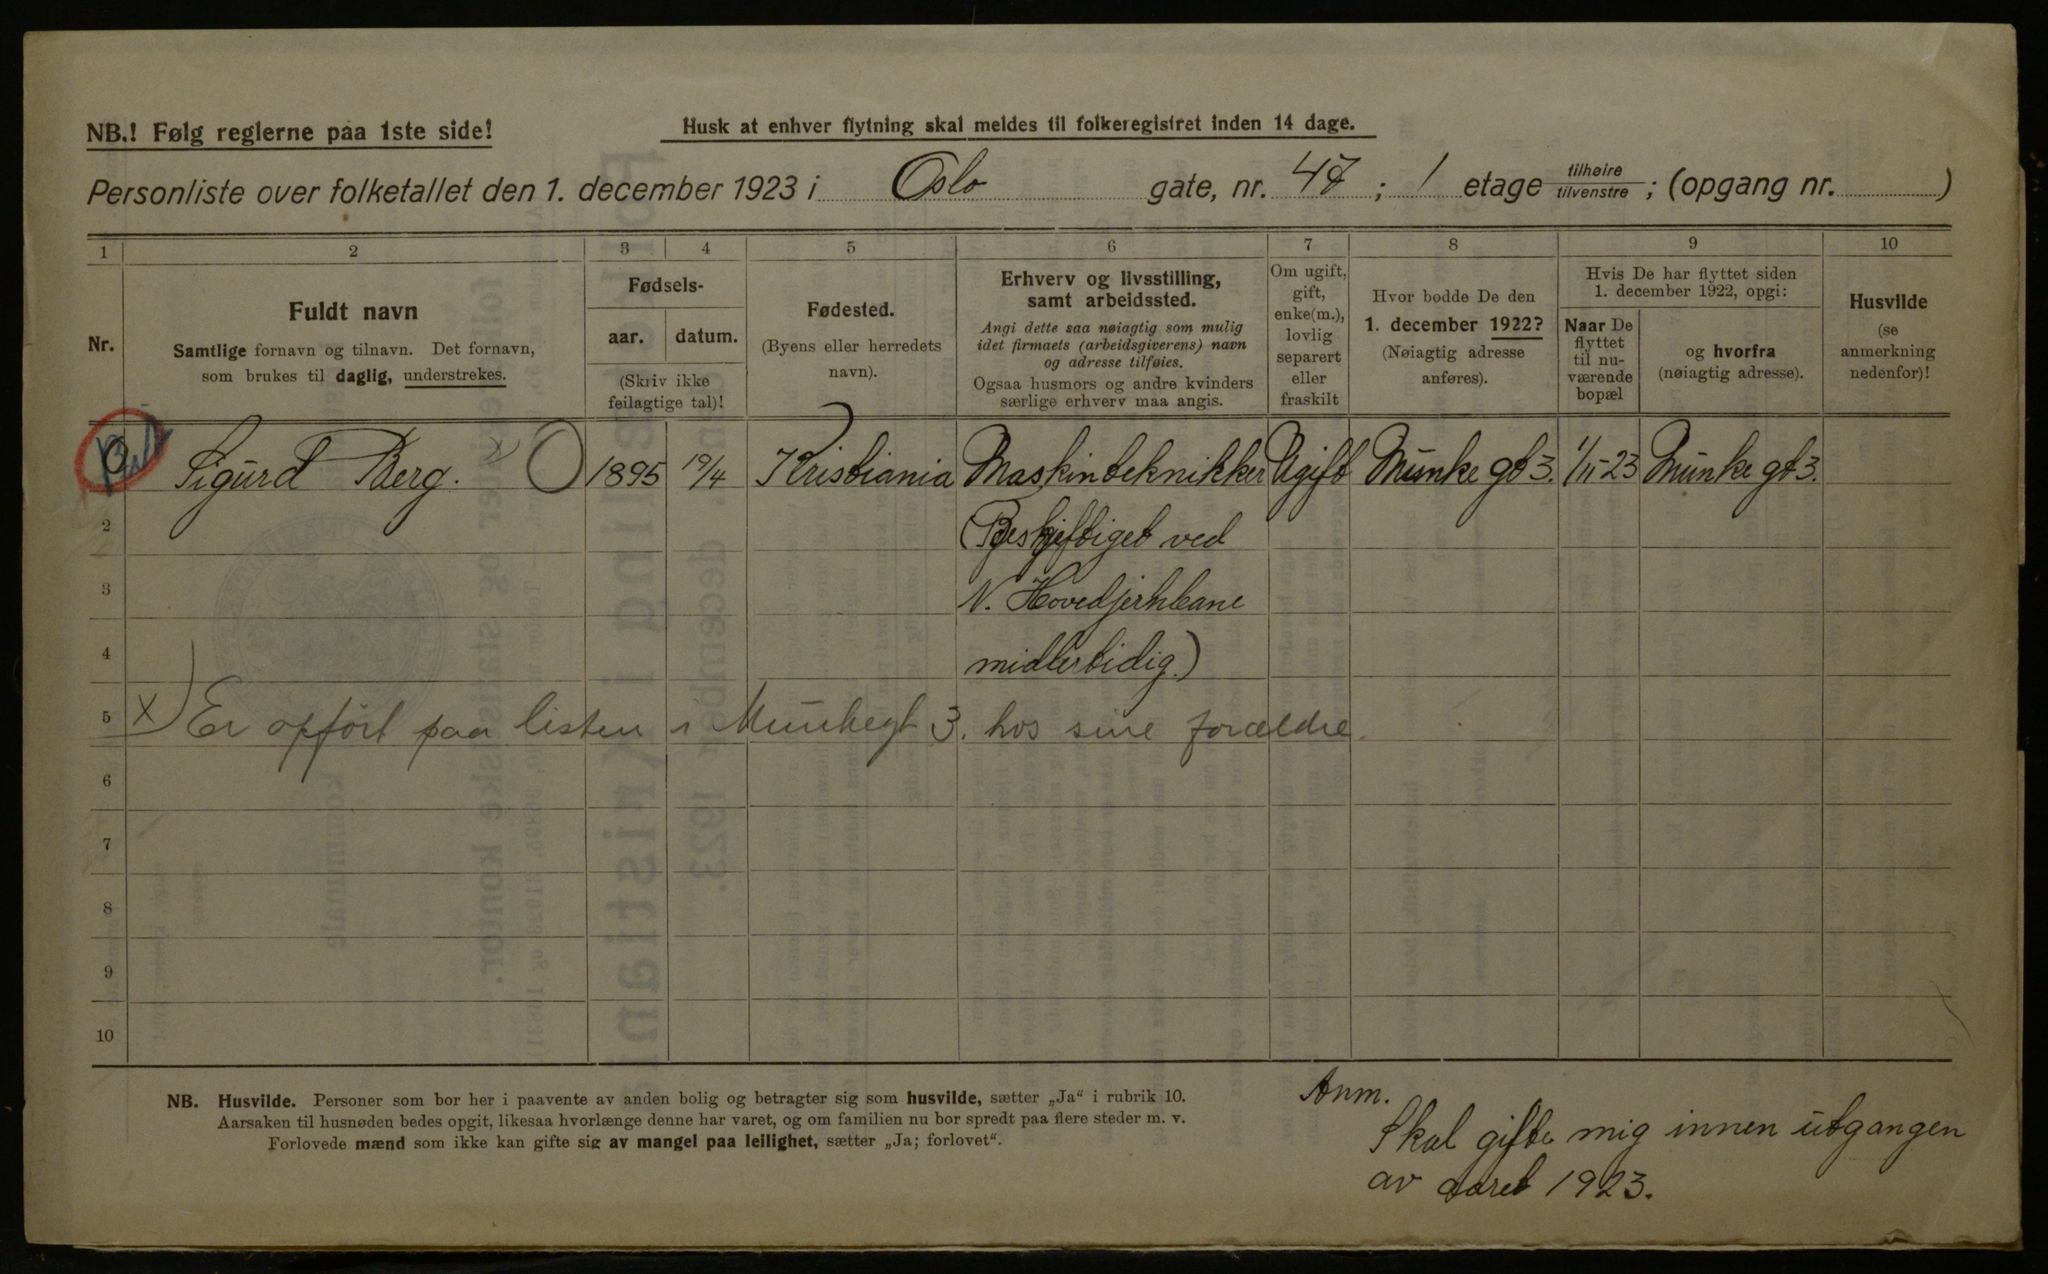 NB.! Følg reglerne paa 1ste side!
Husk at enhver flytning skal meldes til folkeregistret inden 14 dage.
Personliste over folketallet den 1. december 1923 i Oslo gate, nr. 47; 1 etage tilhøire tilvenstre; (opgang nr. )
1 2 3 4 5 6 7 8 9 10
Nr.
Fuldt navn
Samtlige fornavn og tilnavn. Det fornavn,
som brukes til daglig, understrekes.
Fødsels-
aar. datum.
(Skriv ikke
feilagtige tal)!
Fødested.
(Byens eller herredets
navn).
Erhverv og livsstilling,
samt arbeidssted.
Angi dette saa nøiagtig som mulig
idet firmaets (arbeidsgiverens) navn
og adresse tilføies.
Ogsaa husmors og andre kvinders
særlige erhverv maa angis.
Om ugift,
gift,
enke(m.),
lovlig
separert
eller
fraskilt
Hvor bodde De den
1. december 1922?
(Nøiagtig adresse
anføres).
Hvis De har flyttet siden
1. december 1922, opgi:
Naar De
flyttet
til nu-
værende
bopæl
og hvorfra
(nøiagtig adresse).
Husvilde
(se
anmerkning
nedenfor)!
Sigurd Berg. x 1895 19/4 Kristiania Maskinteknikker Ugift Munke gt 3. 1/11 23 Munke gt 3.
2 (Beskjeftiget ved
3 N. Hovedjernbane
4 midlertidig.)
5 x) Er opført paa listen i Munkegt 3. hos sine forældre.
6
7
8
9
10
NB. Husvilde. Personer som bor her i paavente av anden bolig og betragter sig som husvilde, sætter „Ja" i rubrik 10.
Aarsaken til husnøden bedes opgit, likesaa hvorlænge denne har varet, og om familien nu bor spredt paa flere steder m. v.
Forlovede mænd som ikke kan gifte sig av mangel paa leilighet, sætter „Ja; forlovet".
Anm.
Skal gifte mig innen utgangen
av aaret 1923.